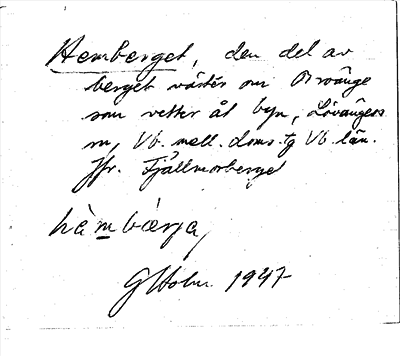 Hemberget, den del av
berget väster om Broänge
som vetter åt byn, Lövångers
sn, Vb. mell. doms. tg Vb. län.
Jfr. Fjällmorberget
hàmbærja,
G Holm 1947